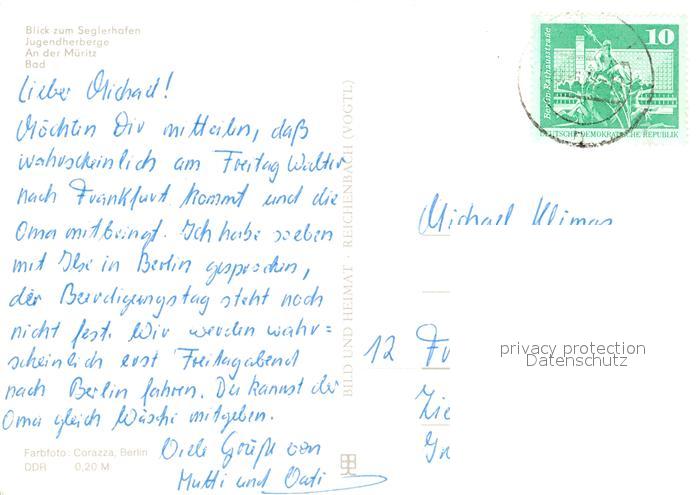 Blick zum Seglerhafen
Jugendherberge
An der Müritz
Bad
Lieber Michael!
Möchten Dir mitteilen, daß
wahrscheinlich am Freitag Walter
nach Frankfurt kommt und die
Oma mitbringt. Ich habe soeben
mit Ilse in Berlin gesprochen,
der Beerdigungstag steht noch
nicht fest. Wir werden wahr=
scheinlich erst Freitagabend
nach Berlin fahren. Du kannst der
Oma gleich Wäsche mitgeben.
Viele Grüße von
Mutti und Vati
Farbfoto: Corazza, Berlin
DDR 0,20 M
BILD UND HEIMAT · REICHENBACH (VOGTL)
10
Berlin, Rathausstraße
DEUTSCHE DEMOKRATISCHE REPUBLIK
Michael Klimas
12 Fr
privacy protection
Datenschutz
Zie